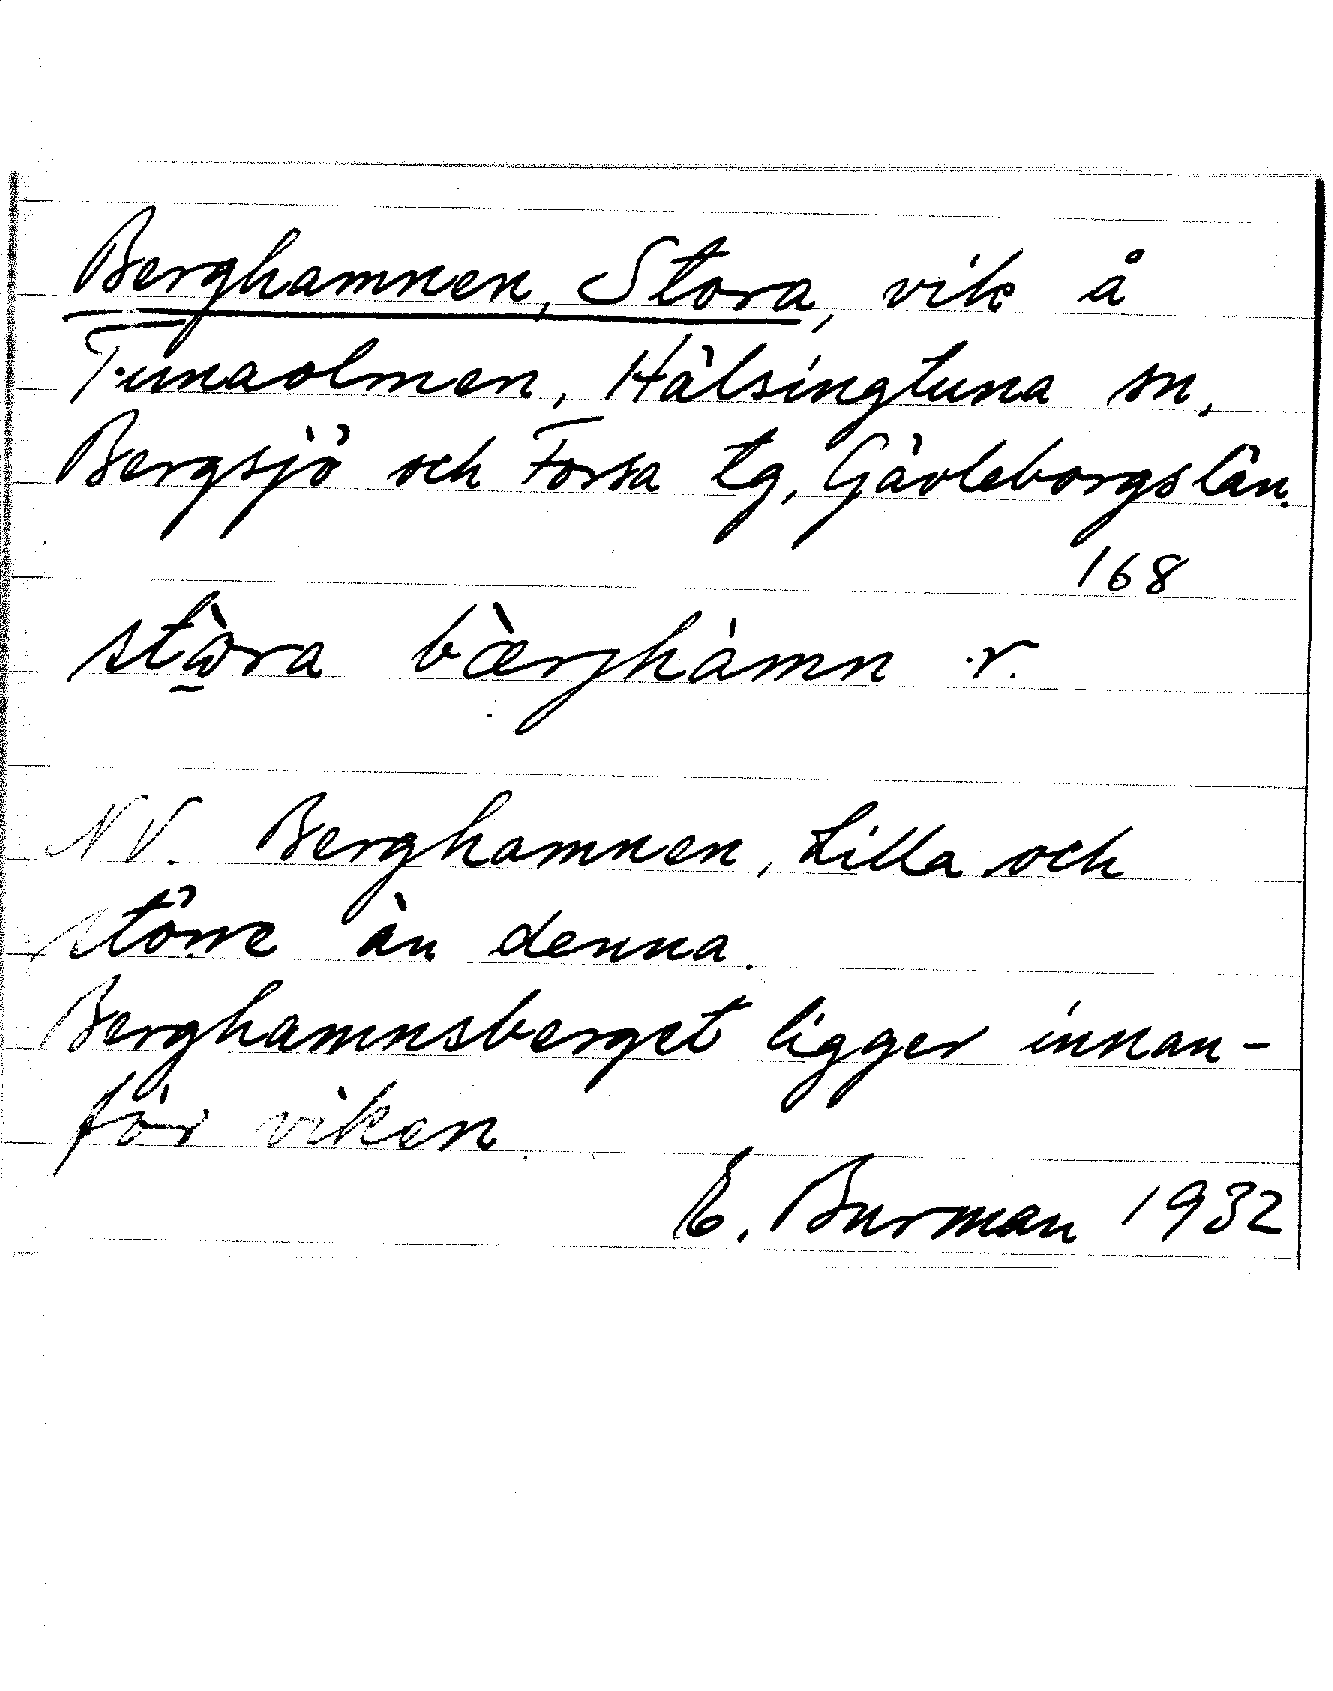 Berghamnen, Stora, vik å
Tunaolmen, Hälsingtuna sn,
Bergsjö och Forsa tg, Gävleborgs län.
168
stὼra bærjhàmn r.
NV. Berghamnen, Lilla och
större än denna.
Berghamnsberget ligger innan-
för viken.
E. Burman 1932